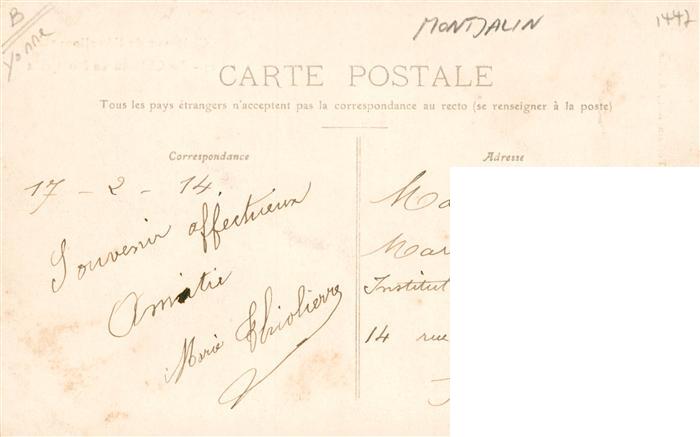 B
Yonne
MONTJALIN
1447
CARTE POSTALE
Tous les pays étrangers n'acceptent pas la correspondance au recto (se renseigner à la poste)
Correspondance
17 - 2 - 14.
Souvenir affectueux
Amitié
Marie Thiolierre
Adresse
Ma
Mar
Institut
14 rue